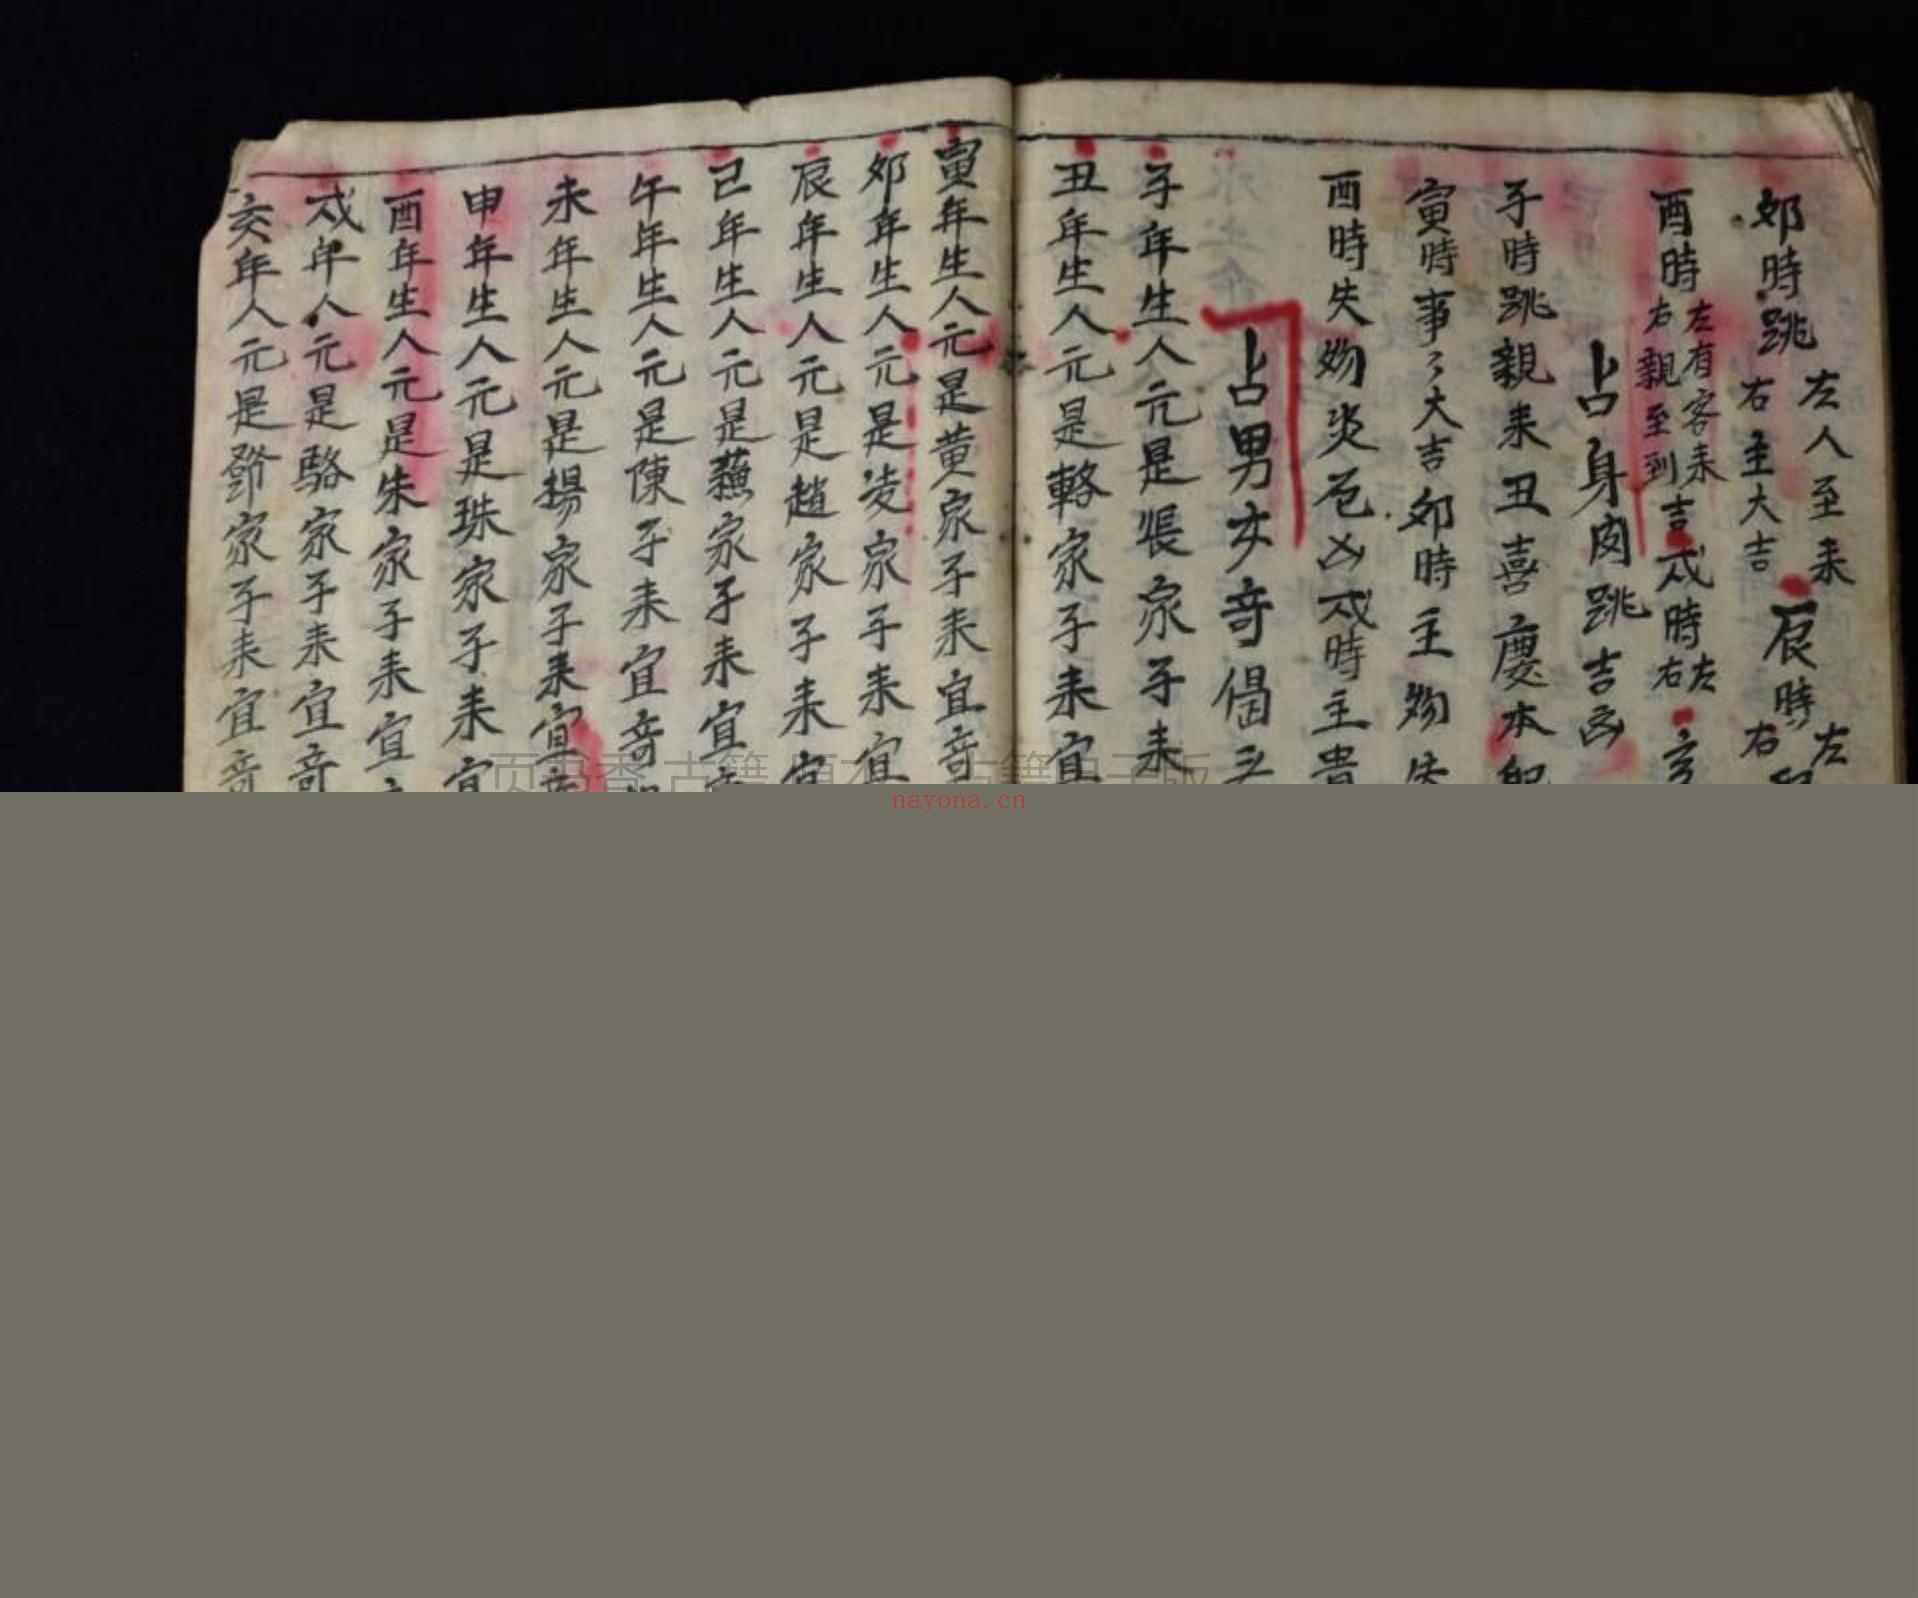 卯時跳 左人至来 右主大吉 辰時 左 右
酉時 左有客来 右親至到 吉 戌時 左 右 亥
占身肉跳吉凶
子時跳親来丑喜慶本
寅時事々大吉卯時主物失
酉時失物災厄凶戌時主貴
占男女奇偈
子年生人元是張家子来
丑年生人元是輅家子来宜
寅年生人元是黄家子来宜奇
卯年生人元是凌家子来宜
辰年生人元是趙家子来宜
己年生人元是蘓家子来宜
午年生人元是陳子来宜奇
未年生人元是楊家子来宜奇
申年生人元是珠家子来宜
酉年生人元是朱家子来宜
戌年人元是駱家子来宜奇
亥年人元是鄧家子来宜奇
nayona.cn